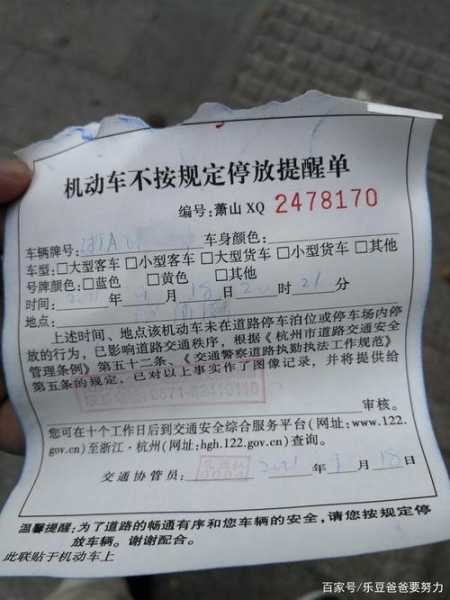 机动车不按规定停放提醒单
编号:萧山 XQ 2478170
车辆牌号:浙A 车身颜色:
车型:□大型客车 □小型客车 □大型货车 □小型货车 □其他
号牌颜色:□蓝色 □黄色 □其他
时间: 年 月 18日 时 21分
地点:
上述时间、地点该机动车未在道路停车泊位或停车场内停
放的行为，已影响道路交通秩序，根据《杭州市道路交通安全
管理条例》第五十二条、《交通警察道路执勤执法工作规范》
第五条的规定，已对以上事实作了图像记录，并将提供给
审核。
您可在十个工作日后到交通安全综合服务平台(网址:www.122.
gov.cn)至浙江·杭州(网址:hgh.122.gov.cn)查询。
交通协管员: 2021年 月18日
温馨提醒:为了道路的畅通有序和您车辆的安全,请您按规定停
放车辆。谢谢配合。
此联贴于机动车上
百家号/乐豆爸爸要努力